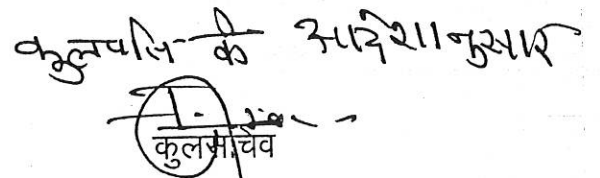 कुलपति के आदेशानुसार
कुलसचिव